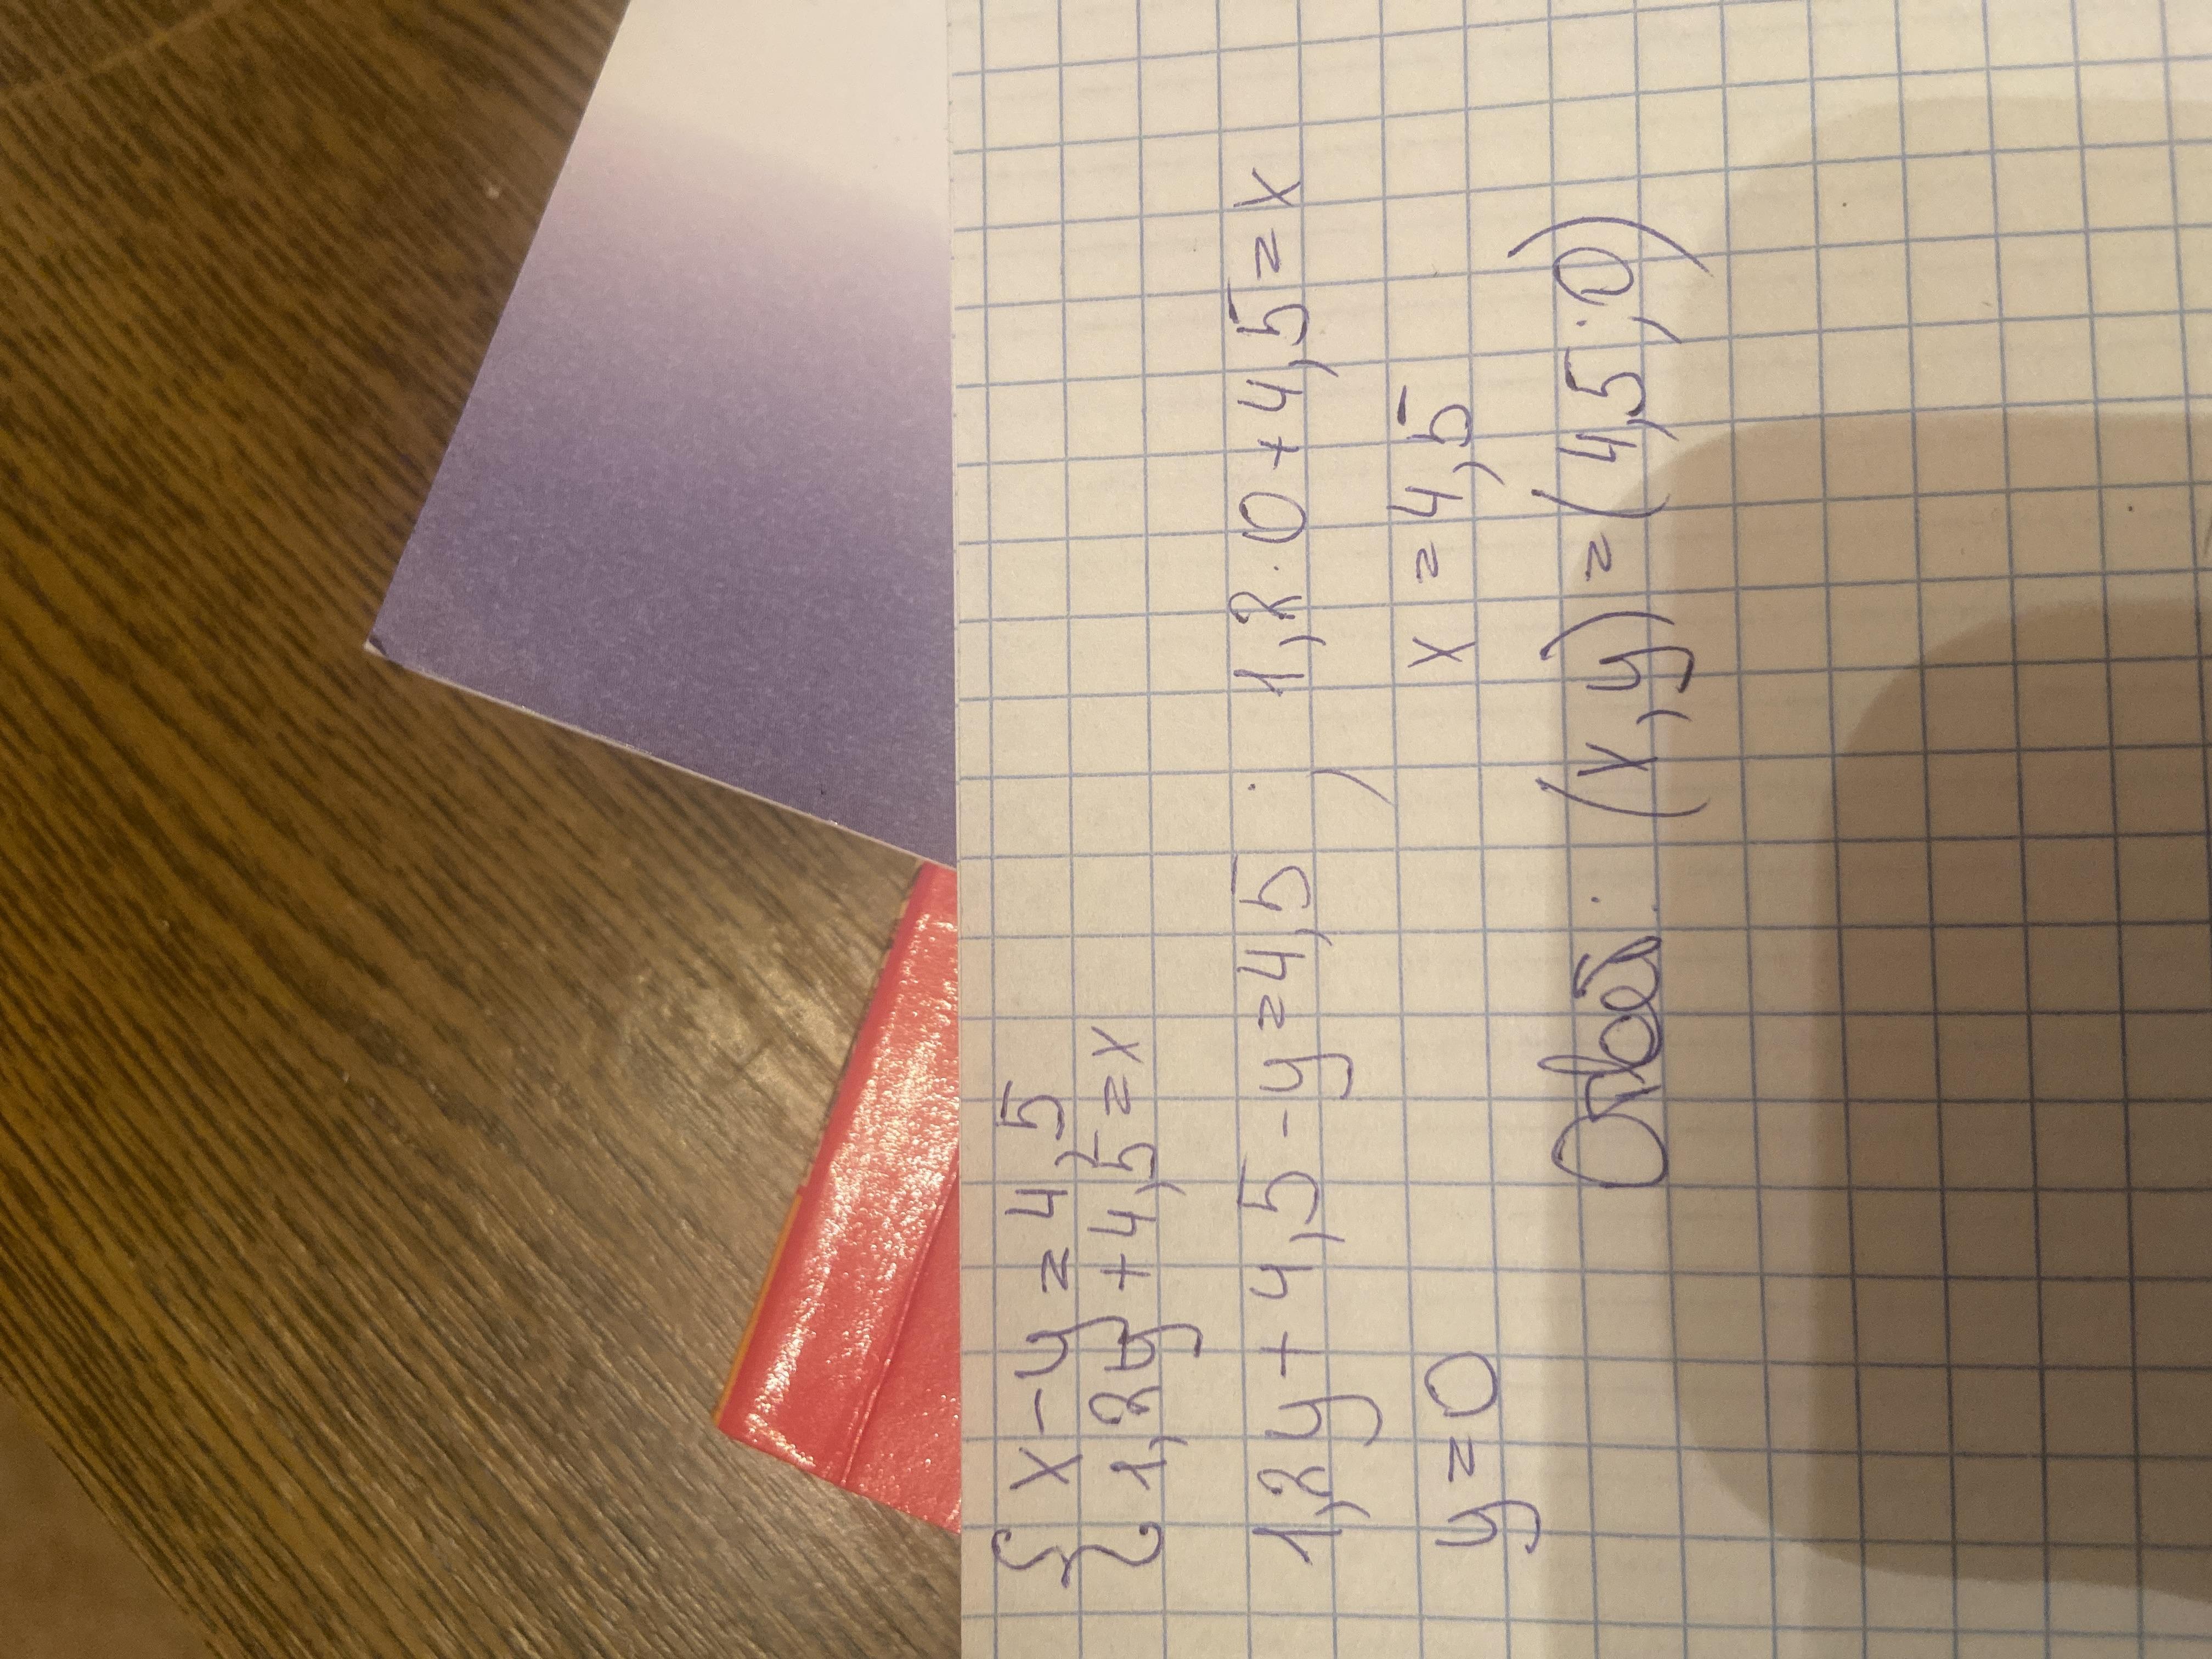 { x - y = 4,5
1,2y + 4,5 = x
1,2y + 4,5 - y = 4,5 ; 1,2 · 0 + 4,5 = x
y = 0 x = 4,5
Ответ: (x,y) = (4,5 ; 0)